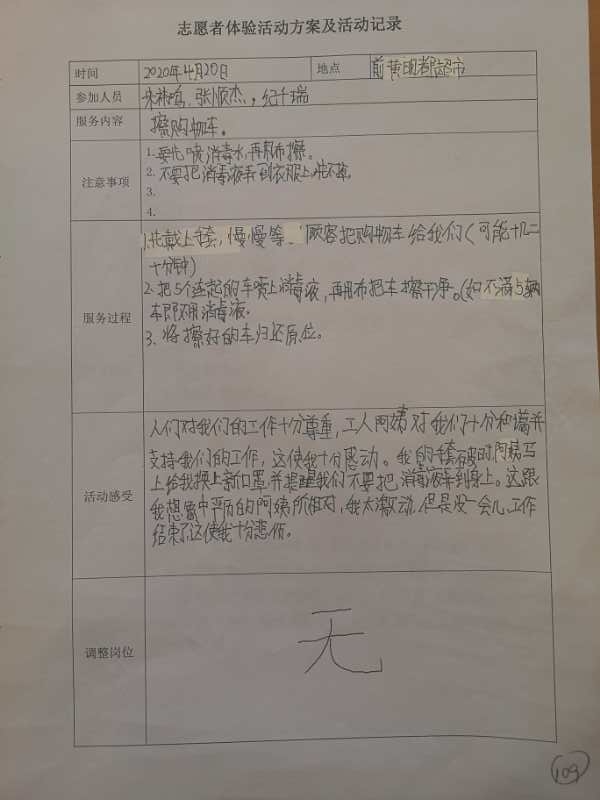 志愿者体验活动方案及活动记录
时间 2020年4月20日 地点 前黄明都超市
参加人员 朱祎鸣、张顺杰、纪千瑞
服务内容 擦购物车。
注意事项
1.要先喷消毒水,再用布擦。
2.不要把消毒液弄到衣服上,洗不掉。
3.
4.
服务过程
1.先戴上手套,慢慢等 顾客把购物车给我们(可能十几二
十分钟)
2.把5个连起的车喷上消毒液,再用布把车擦干净。(如不满5辆
车即不用消毒液.
3、将擦好的车归还原位。
活动感受
人们对我们的工作十分尊重,工人阿姨对我们十分和蔼并
支持我们的工作,这使我十分感动。我的手套破时,阿姨马
上给我换上新口罩,并提醒我们不要把消毒液弄到身上。这跟
我想象中严厉的阿姨所相对,我太激动,但是没一会儿,工作
结束了,这使我十分悲伤。
调整岗位 无
109